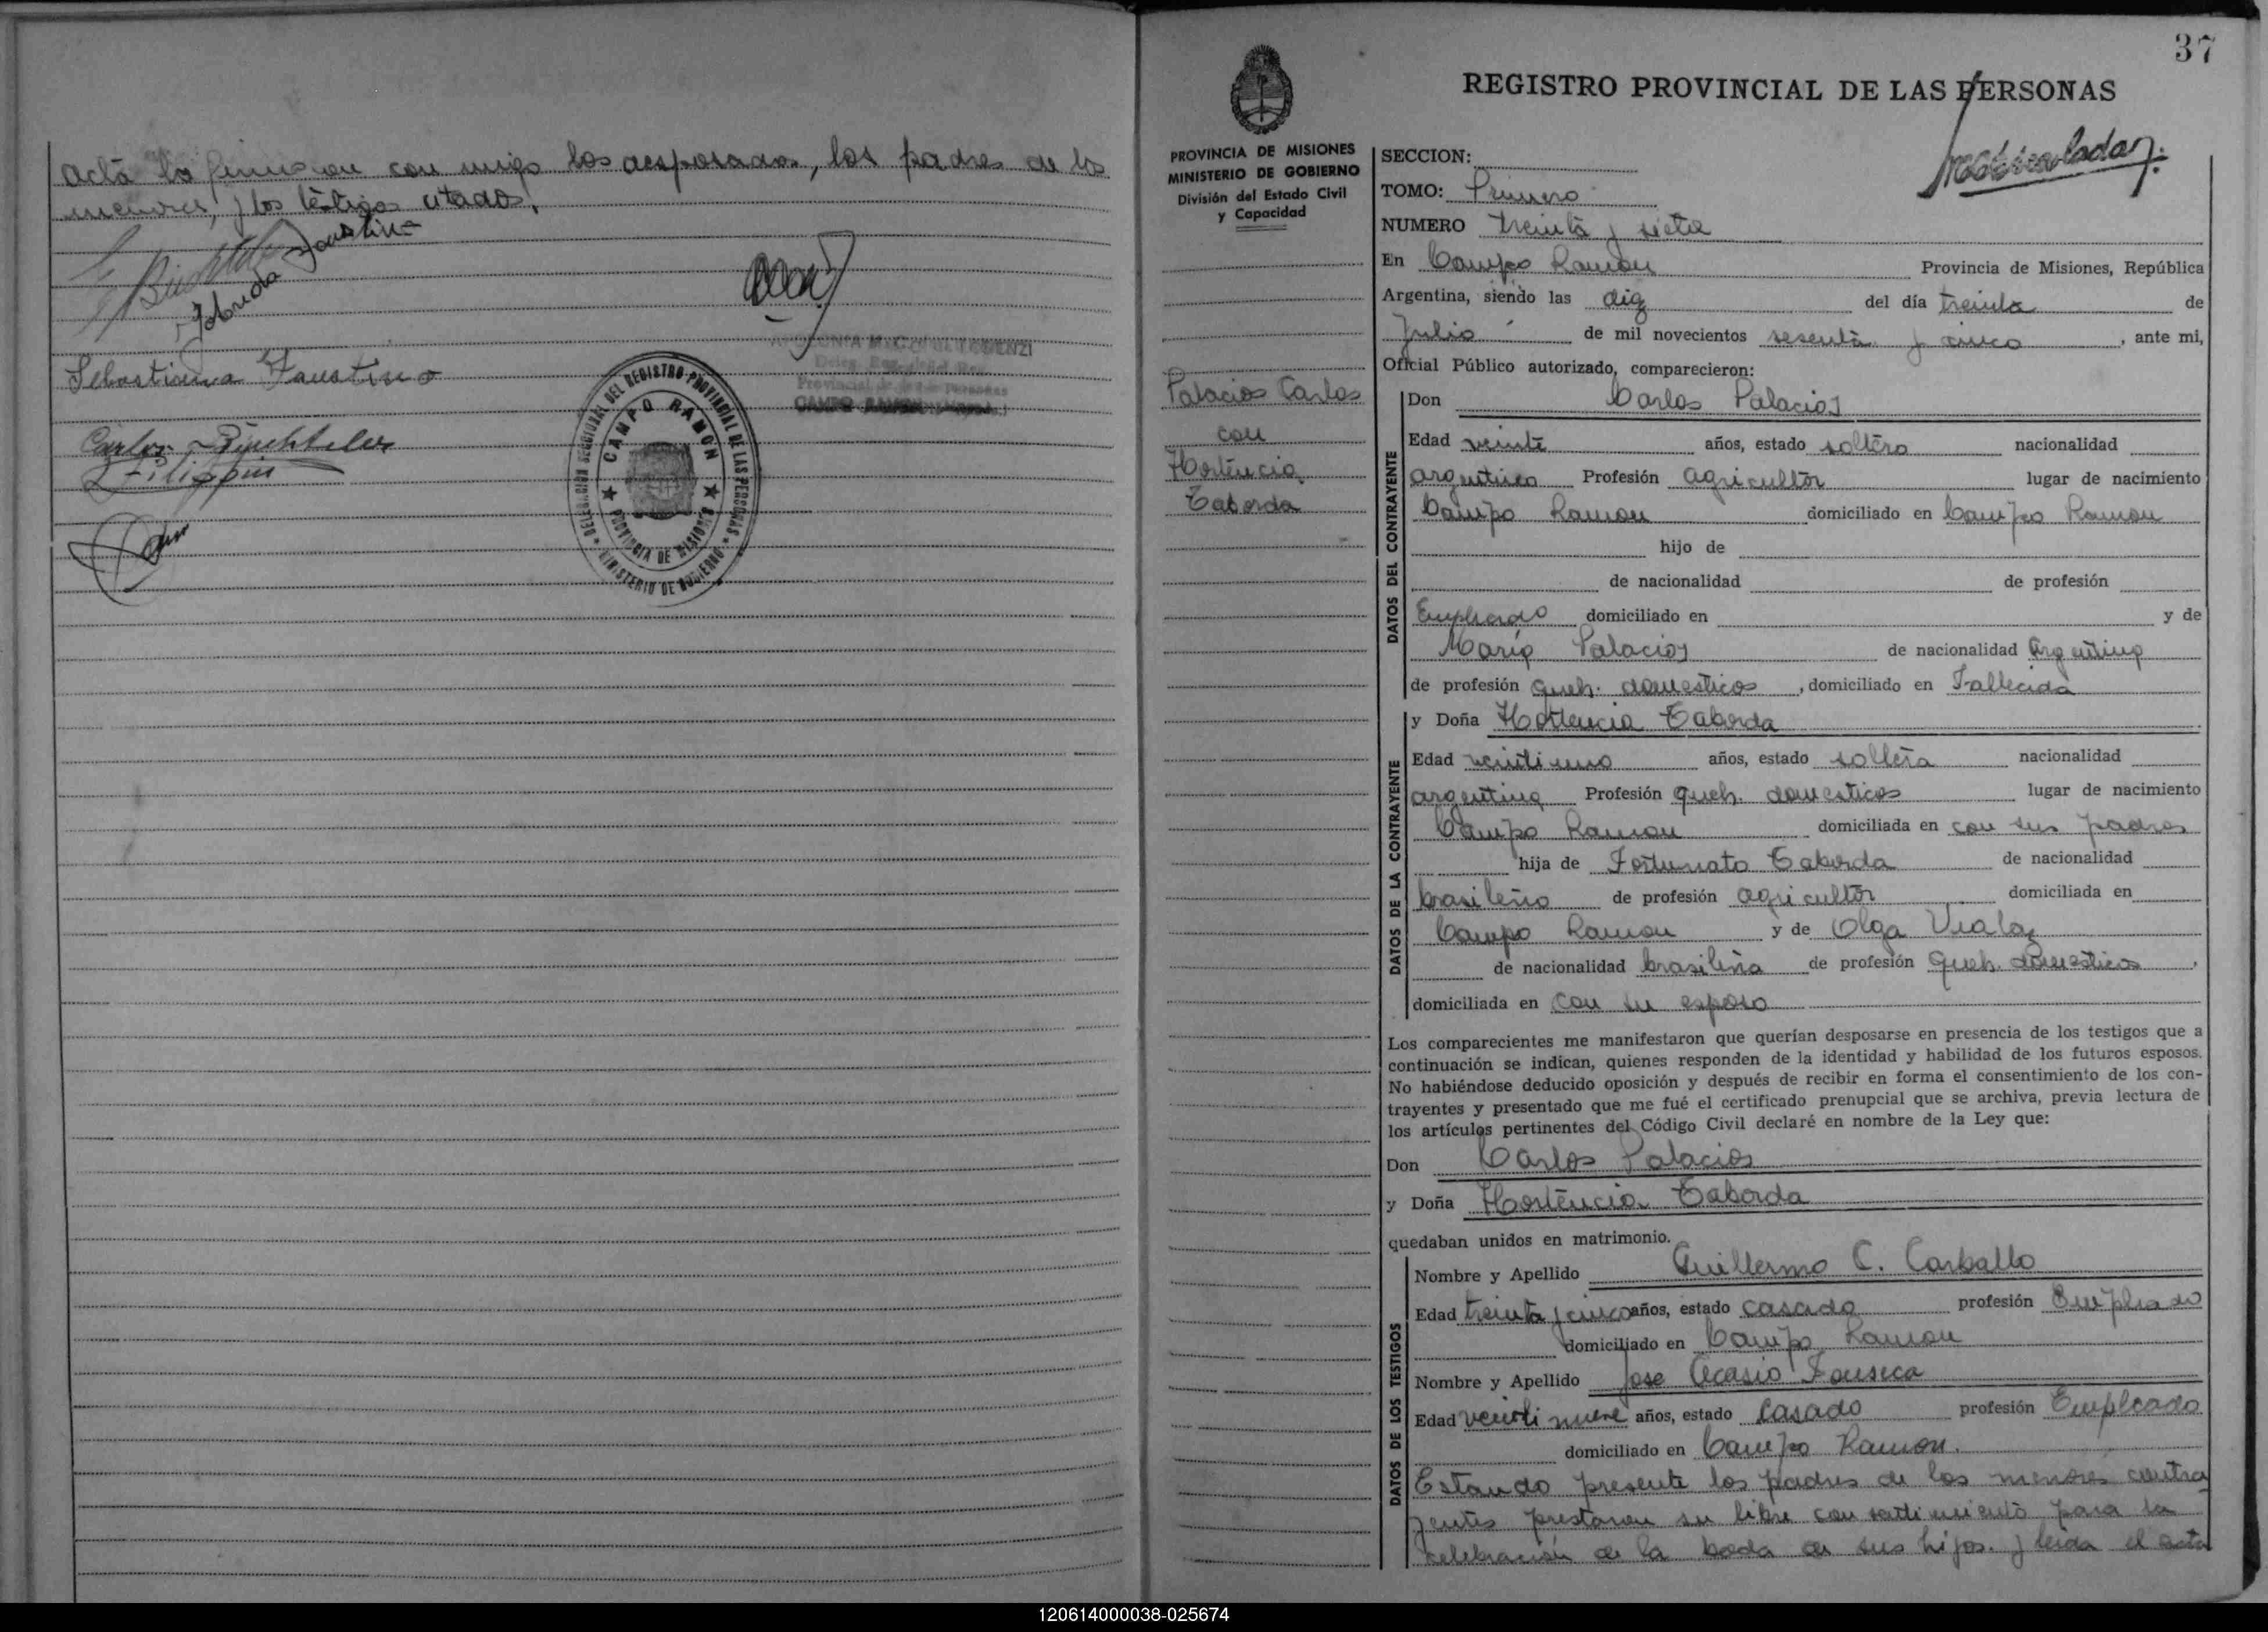 acta la firmaron con migo los desposados, los padres de la
menores, y los testigos citados.
Faustino
Sebastiana Faustino
Carlos
Filippin
DELEGACION SECCIONAL DEL REGISTRO PROVINCIAL DE LAS PERSONAS
CAMPO RAMON
PROVINCIA DE MISIONES
MINISTERIO DE GOBIERNO
Provincial de las Personas
CAMPO RAMON
37
REGISTRO PROVINCIAL DE LAS PERSONAS
PROVINCIA DE MISIONES
MINISTERIO DE GOBIERNO
División del Estado Civil
y Capacidad
Palacios Carlos
con
Hortencia
Taborda
SECCION:
TOMO: Primero
NUMERO treinta y siete
En Campo Ramon Provincia de Misiones, República
Argentina, siendo las diez del día treinta de
Julio de mil novecientos sesenta y cinco, ante mi,
Oficial Público autorizado, comparecieron:
DATOS DEL CONTRAYENTE
Don Carlos Palacios
Edad veinte años, estado soltero nacionalidad
argentino Profesión agricultor lugar de nacimiento
Campo Ramon domiciliado en Campo Ramon
hijo de
de nacionalidad de profesión
Empleado domiciliado en y de
María Palacios de nacionalidad argentina
de profesión queh. domesticos, domiciliado en Fallecida
DATOS DE LA CONTRAYENTE
y Doña Hortencia Taborda
Edad veintiuno años, estado soltera nacionalidad
argentina Profesión queh. domesticos lugar de nacimiento
Campo Ramon domiciliada en con sus padres
hija de Fortunato Taborda de nacionalidad
brasileño de profesión agricultor domiciliada en
Campo Ramon y de Olga
de nacionalidad brasileña de profesión queh. domesticos,
domiciliada en con su esposo
Los comparecientes me manifestaron que querían desposarse en presencia de los testigos que a
continuación se indican, quienes responden de la identidad y habilidad de los futuros esposos.
No habiéndose deducido oposición y después de recibir en forma el consentimiento de los con-
trayentes y presentado que me fué el certificado prenupcial que se archiva, previa lectura de
los artículos pertinentes del Código Civil declaré en nombre de la Ley que:
Don Carlos Palacios
y Doña Hortencia Taborda
quedaban unidos en matrimonio.
DATOS DE LOS TESTIGOS
Nombre y Apellido Guillermo C. Carballo
Edad treinta y cinco años, estado casado profesión Empleado
domiciliado en Campo Ramon
Nombre y Apellido Jose Acasio Fonseca
Edad veinti nueve años, estado casado profesión Empleado
domiciliado en Campo Ramon.
Estando presente los padres de los menores contra
yentes prestaron su libre consentimiento para la
celebracion de la boda de sus hijos. y leida el acta
120614000038-025674